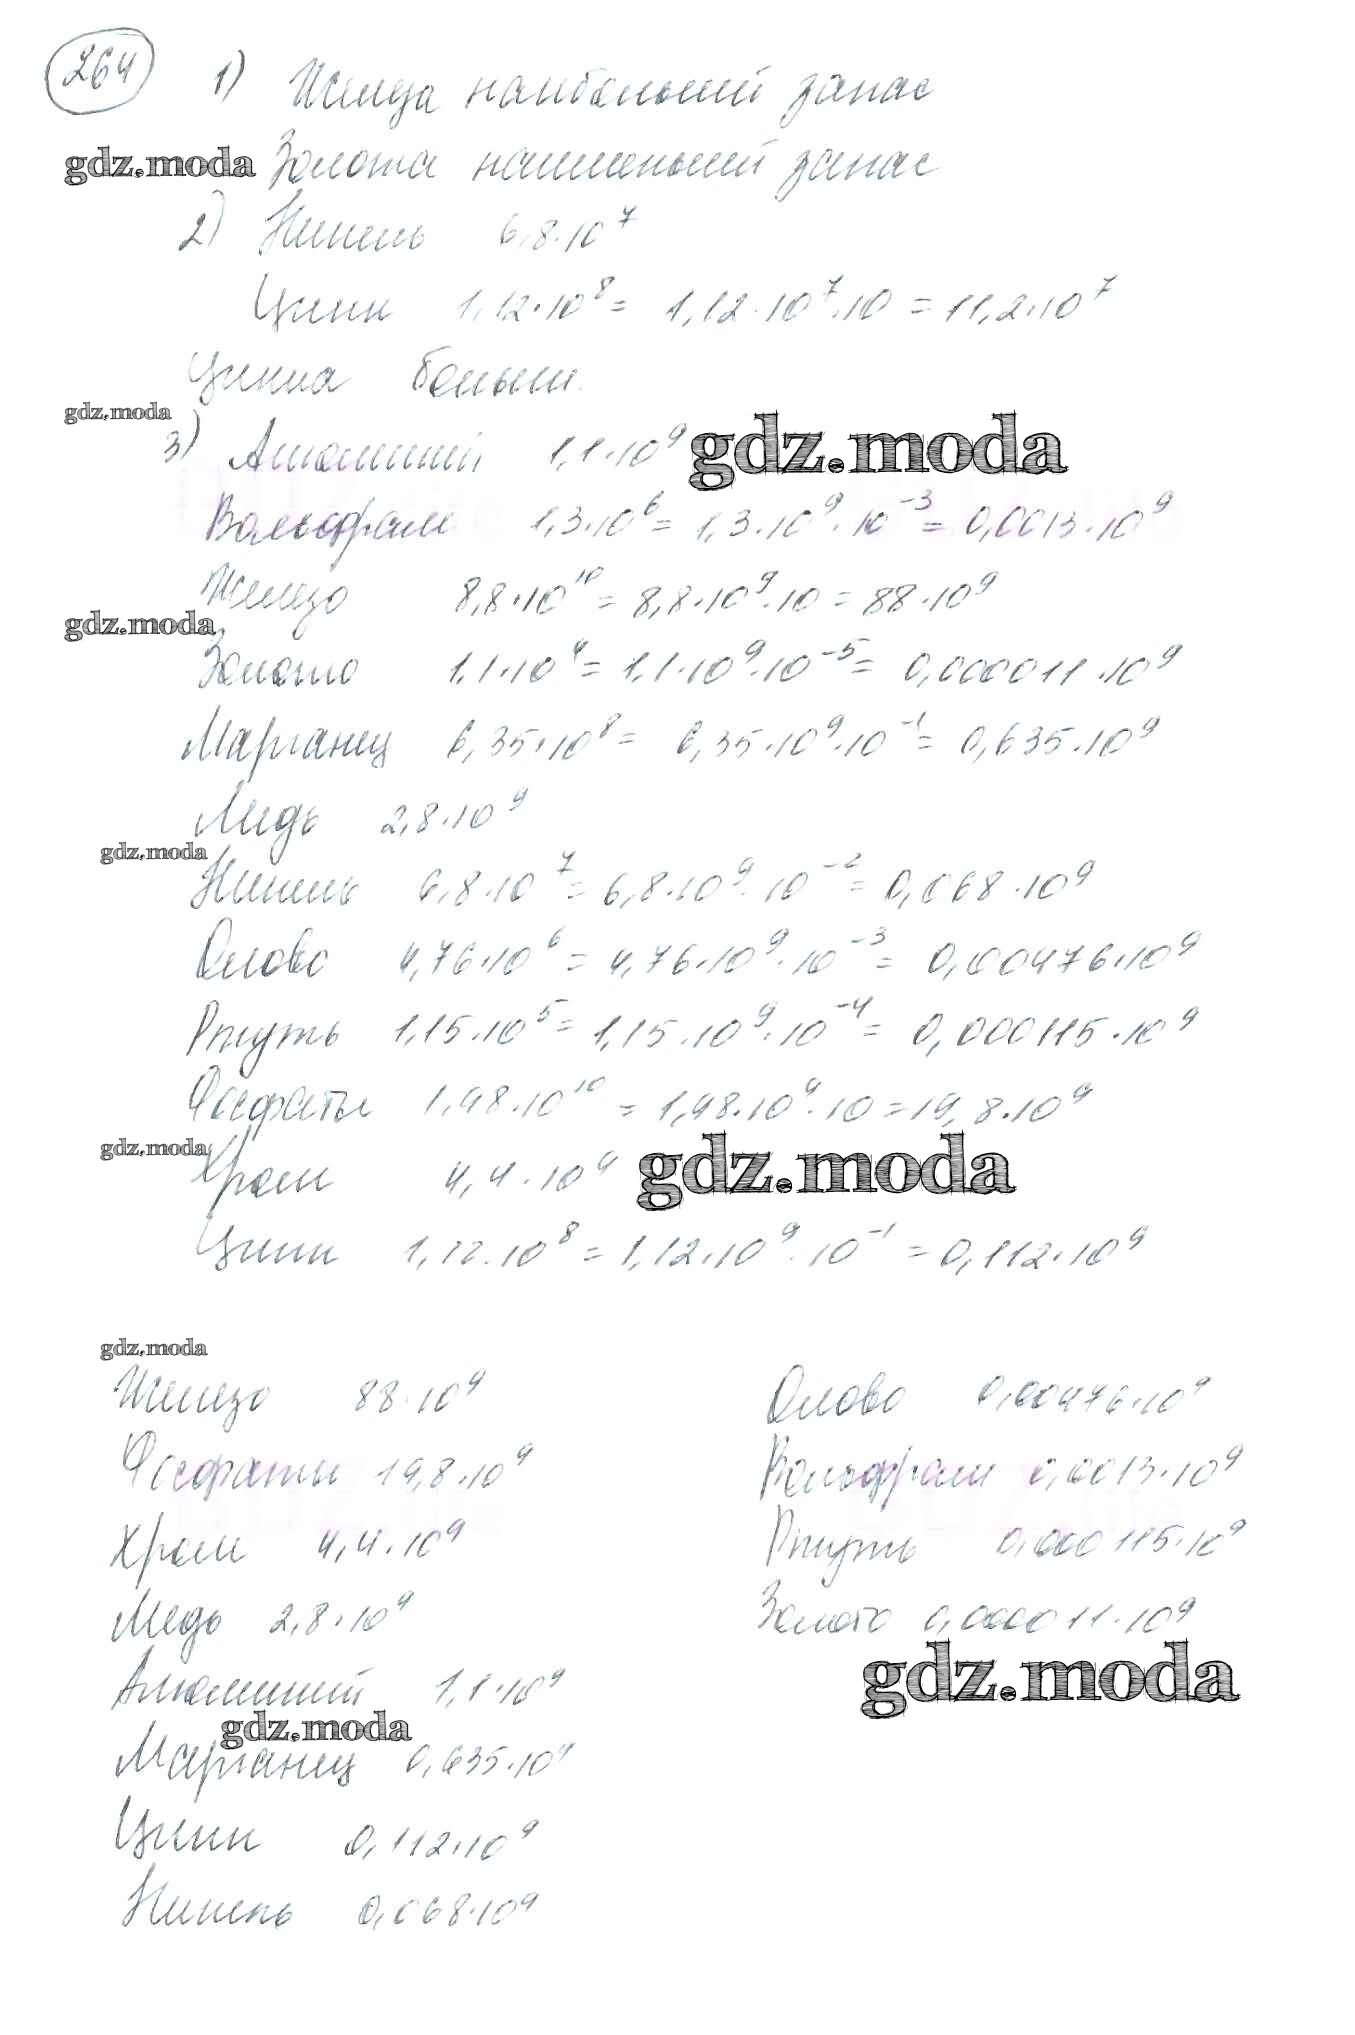 264 1) Железа наибольший запас
gdz.moda Золота наименьший запас
2) Никель 6,8·10⁷
Цинк 1,12·10⁸ = 1,12·10⁷·10 = 11,2·10⁷
Цинка больше.
gdz.moda
3) Алюминий 1,1·10⁹ gdz.moda
Вольфрам 1,3·10⁶ = 1,3·10⁹·10⁻³ = 0,0013·10⁹
Железо 8,8·10¹⁰ = 8,8·10⁹·10 = 88·10⁹
gdz.moda
Золото 1,1·10⁴ = 1,1·10⁹·10⁻⁵ = 0,000011·10⁹
Марганец 6,35·10⁸ = 6,35·10⁹·10⁻¹ = 0,635·10⁹
Медь 2,8·10⁹
gdz.moda
Никель 6,8·10⁷ = 6,8·10⁹·10⁻² = 0,068·10⁹
Олово 4,76·10⁶ = 4,76·10⁹·10⁻³ = 0,00476·10⁹
Ртуть 1,15·10⁵ = 1,15·10⁹·10⁻⁴ = 0,000115·10⁹
Фосфаты 1,98·10¹⁰ = 1,98·10⁹·10 = 19,8·10⁹
gdz.moda
Хром 4,4·10⁹ gdz.moda
Цинк 1,12·10⁸ = 1,12·10⁹·10⁻¹ = 0,112·10⁹
gdz.moda
Железо 88·10⁹
Фосфаты 19,8·10⁹
Хром 4,4·10⁹
Медь 2,8·10⁹
Алюминий 1,1·10⁹
gdz.moda
Марганец 0,635·10⁹
Цинк 0,112·10⁹
Никель 0,068·10⁹
Олово 0,00476·10⁹
Вольфрам 0,0013·10⁹
Ртуть 0,000115·10⁹
Золото 0,000011·10⁹
gdz.moda